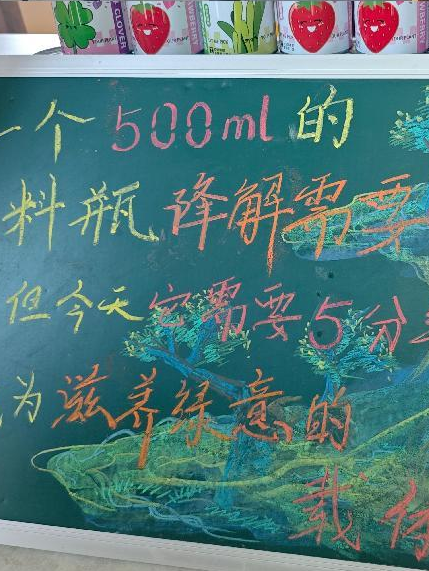 CLOVER
一个500ml的
料瓶降解需要
但今天它需要5分
为滋养绿意的
载体